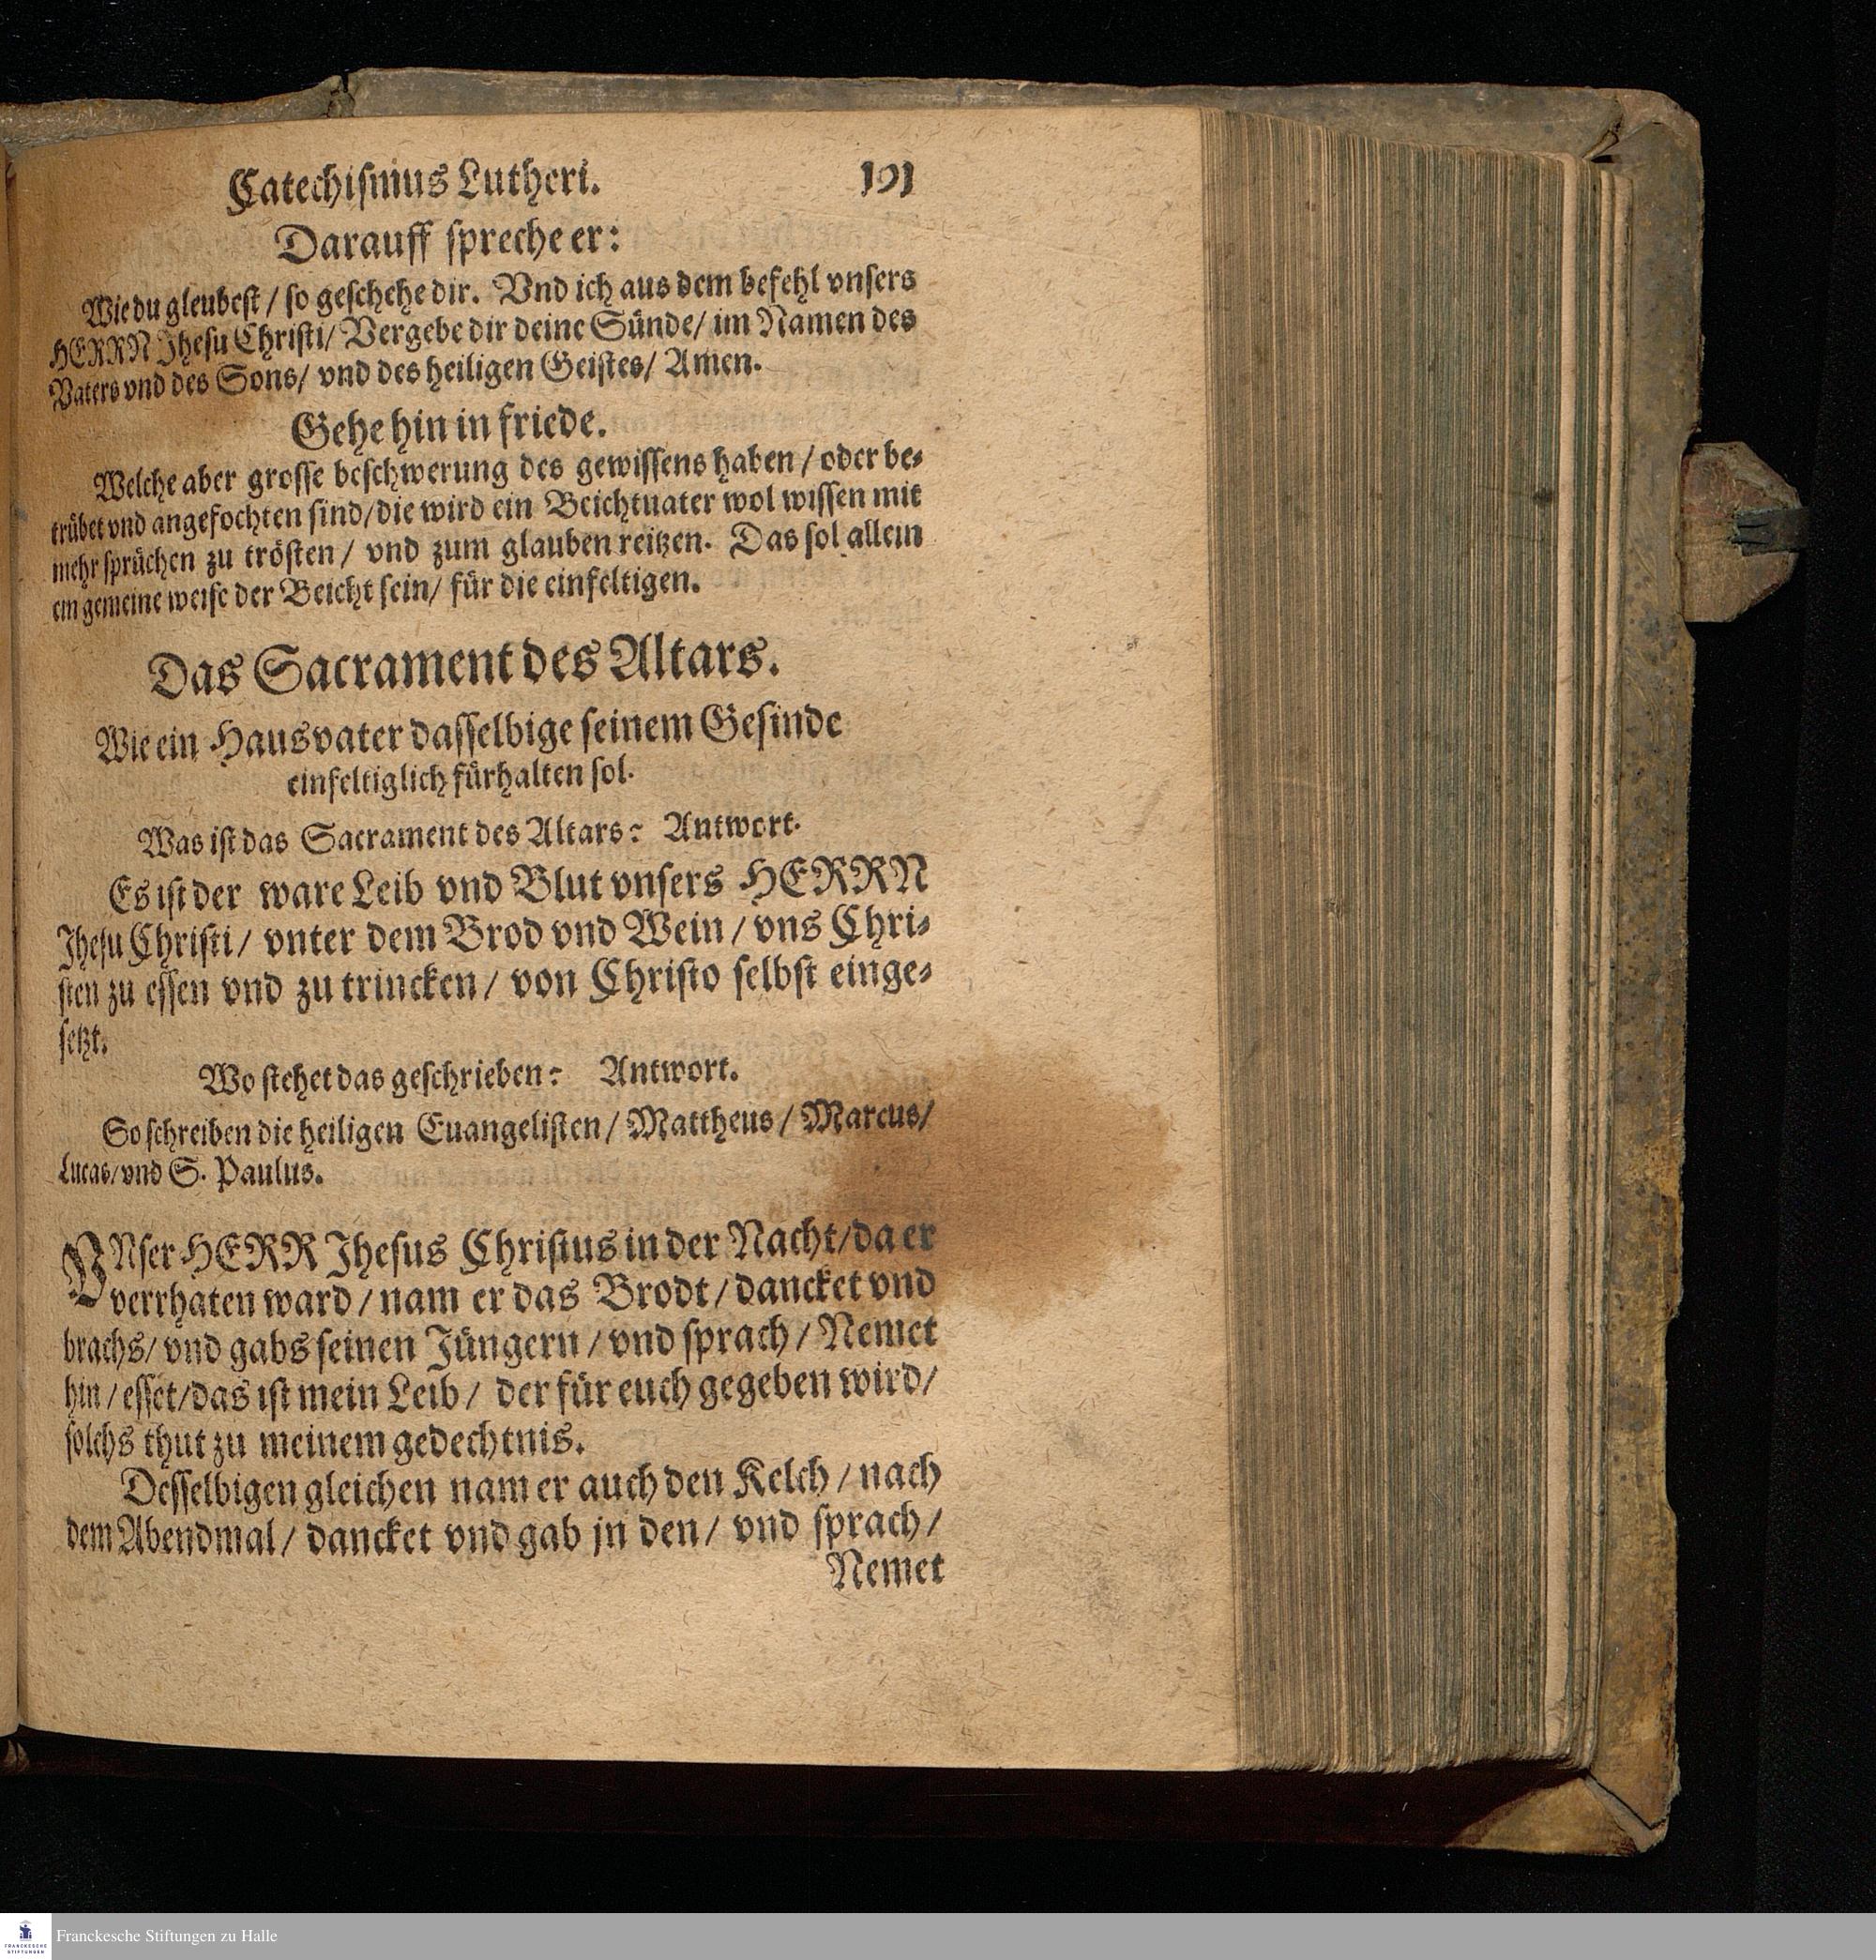 Catechismus Lutheri. 191
Darauff spreche er:
Wie du gleubest / so geschehe dir. Vnd ich aus dem befehl vnsers
HERRN Jhesu Christi/ Vergebe dir deine Sünde/ im Namen des
Vaters vnd des Sons/ vnd des heiligen Geistes/ Amen.
Gehe hin in friede.
Welche aber grosse beschwerung des gewissens haben / oder be-
trübet vnd angefochten sind/die wird ein Beichtuater wol wissen mit
mehr sprüchen zu trösten / vnd zum glauben reitzen. Das sol allein
ein gemeine weise der Beicht sein/ für die einfeltigen.
Das Sacrament des Altars.
Wie ein Hausvater dasselbige seinem Gesinde
einfeltiglich fürhalten sol.
Was ist das Sacrament des Altars? Antwort.
Es ist der ware Leib vnd Blut vnsers HERRN
Jhesu Christi/ vnter dem Brod vnd Wein / vns Chri-
sten zu essen vnd zu trincken / von Christo selbst einge-
setzt.
Wo stehet das geschrieben? Antwort.
So schreiben die heiligen Euangelisten / Mattheus / Marcus/
Lucas/vnd S. Paulus.
VNser HERR Jhesus Christus in der Nacht/da er
verrhaten ward / nam er das Brodt / dancket vnd
brachs/ vnd gabs seinen Jüngern / vnd sprach / Nemet
hin / esset/das ist mein Leib / der für euch gegeben wird/
solchs thut zu meinem gedechtnis.
Desselbigen gleichen nam er auch den Kelch / nach
dem Abendmal / dancket vnd gab jn den / vnd sprach /
Nemet
FRANCKESCHE
STIFTUNGEN
Franckesche Stiftungen zu Halle